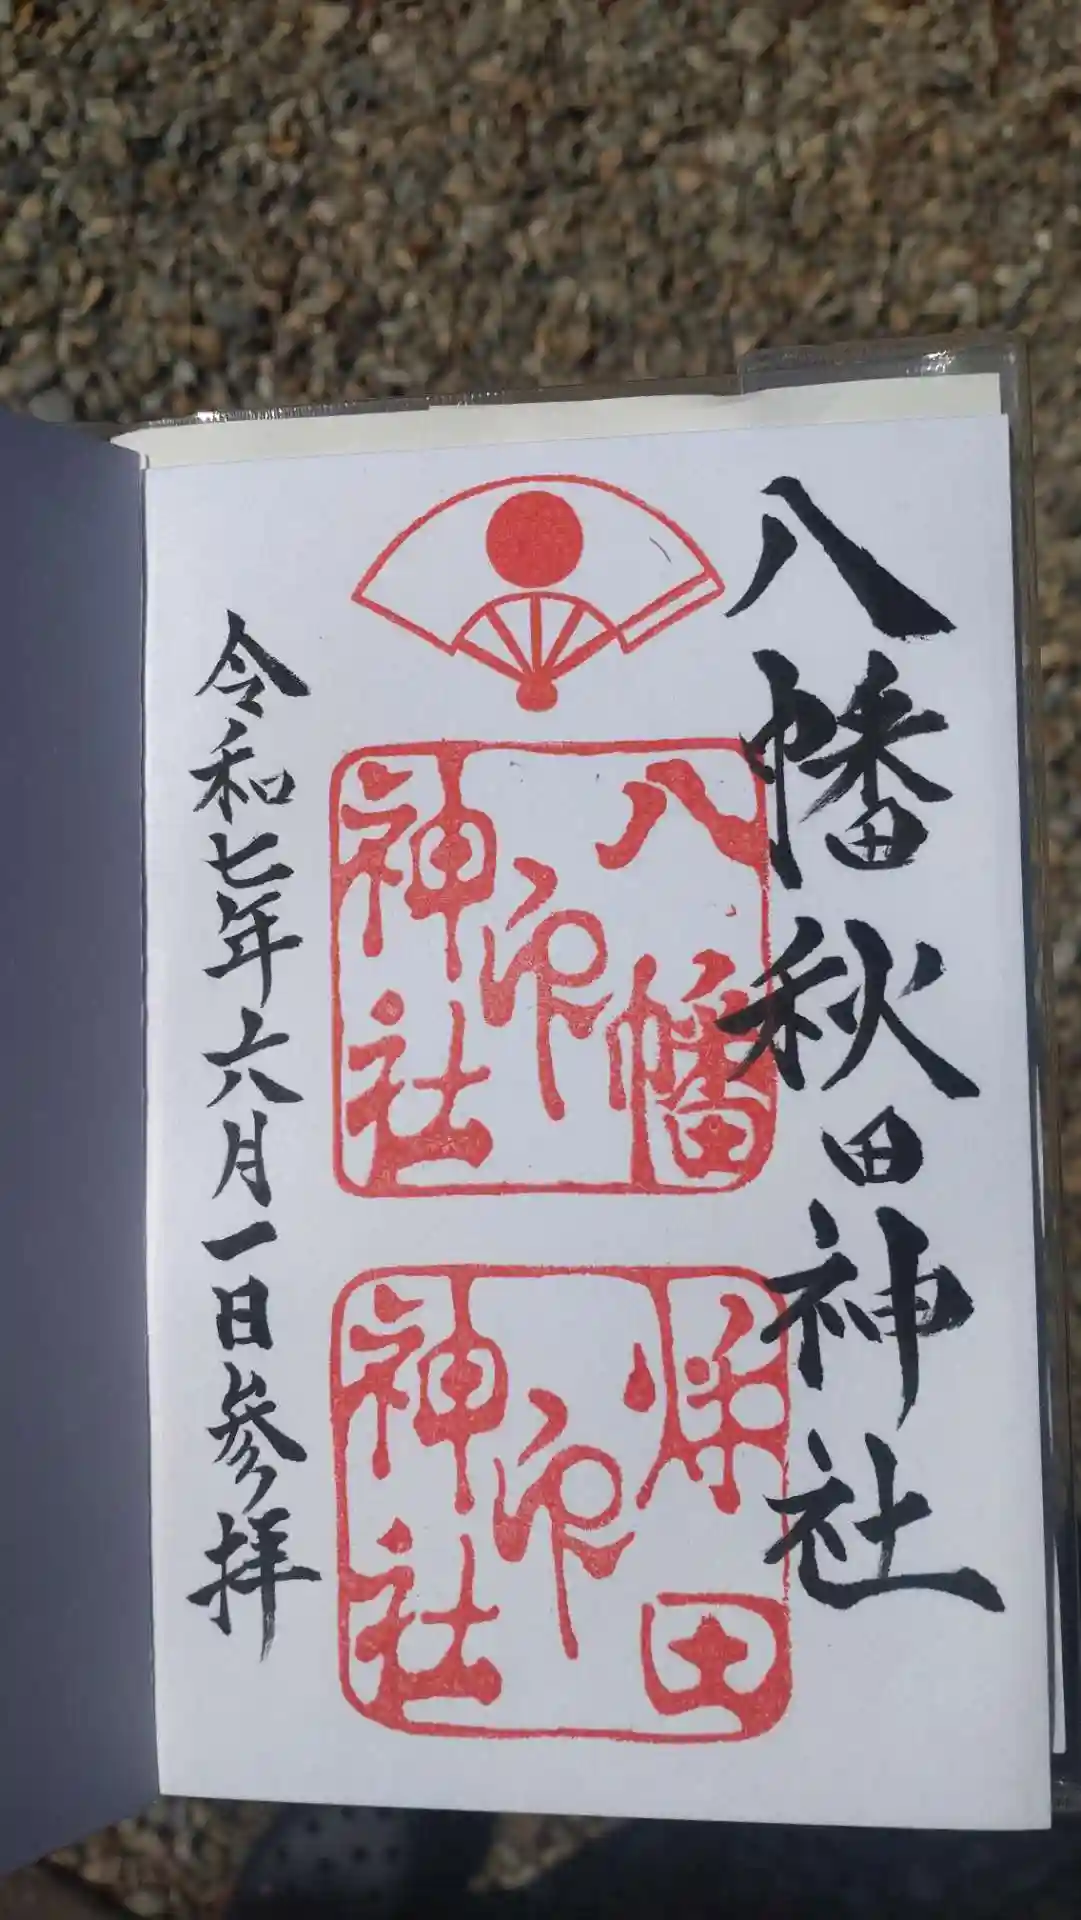 八幡秋田神社
八幡
印
神社
秌田
印
神社
令和七年六月一日参拝